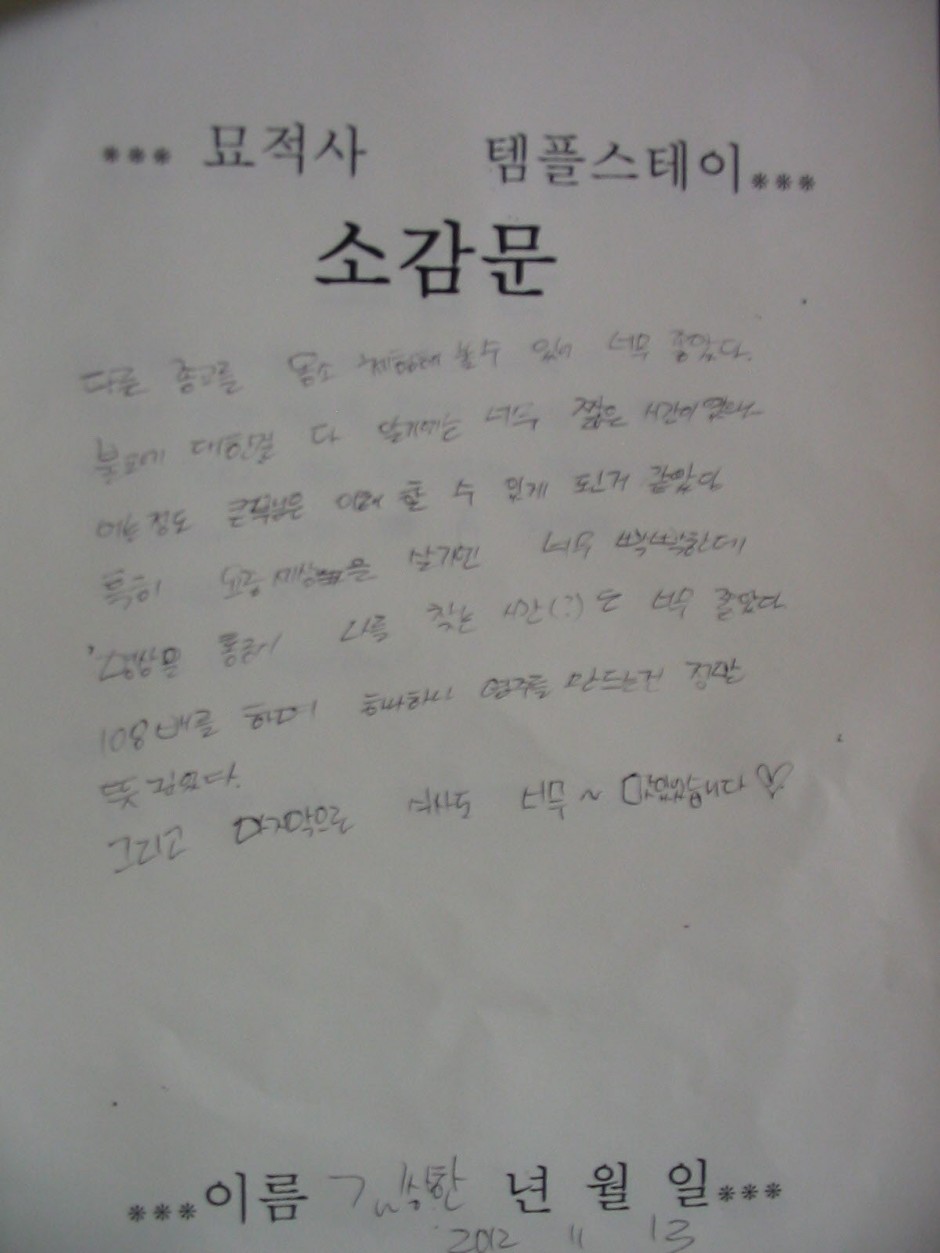 *** 묘적사 템플스테이 ***
소감문
다른 종교를 몸소 체험해 볼 수 있어 너무 좋았다.
불교에 대한걸 다 알기에는 너무 짧은 시간이였다
어느정도 큰 부분은 이해 할 수 있게 된거 같았다
특히 요즘 세상은 살기엔 너무 빡빡한데
명상을 통해 나를 찾는 시간(?)도 너무 좋았다
108배를 하며 하나하나 염주를 만드는건 정말
뜻 깊었다.
그리고 마지막으로 식사도 너무~ 맛있었습니다♡
***이름 년 월 일***
2012 11 13